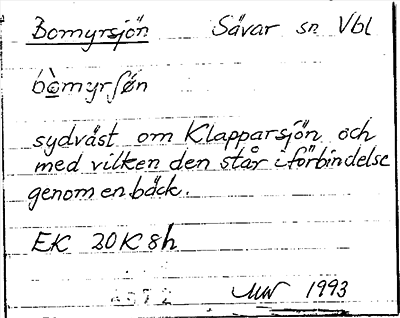 Bomyrsjön Sävar sn Vbl
bòmyrʃøn
sydväst om Klapparsjön och
med vilken den står i förbindelse
genom en bäck.
EK 20K 8h
1993